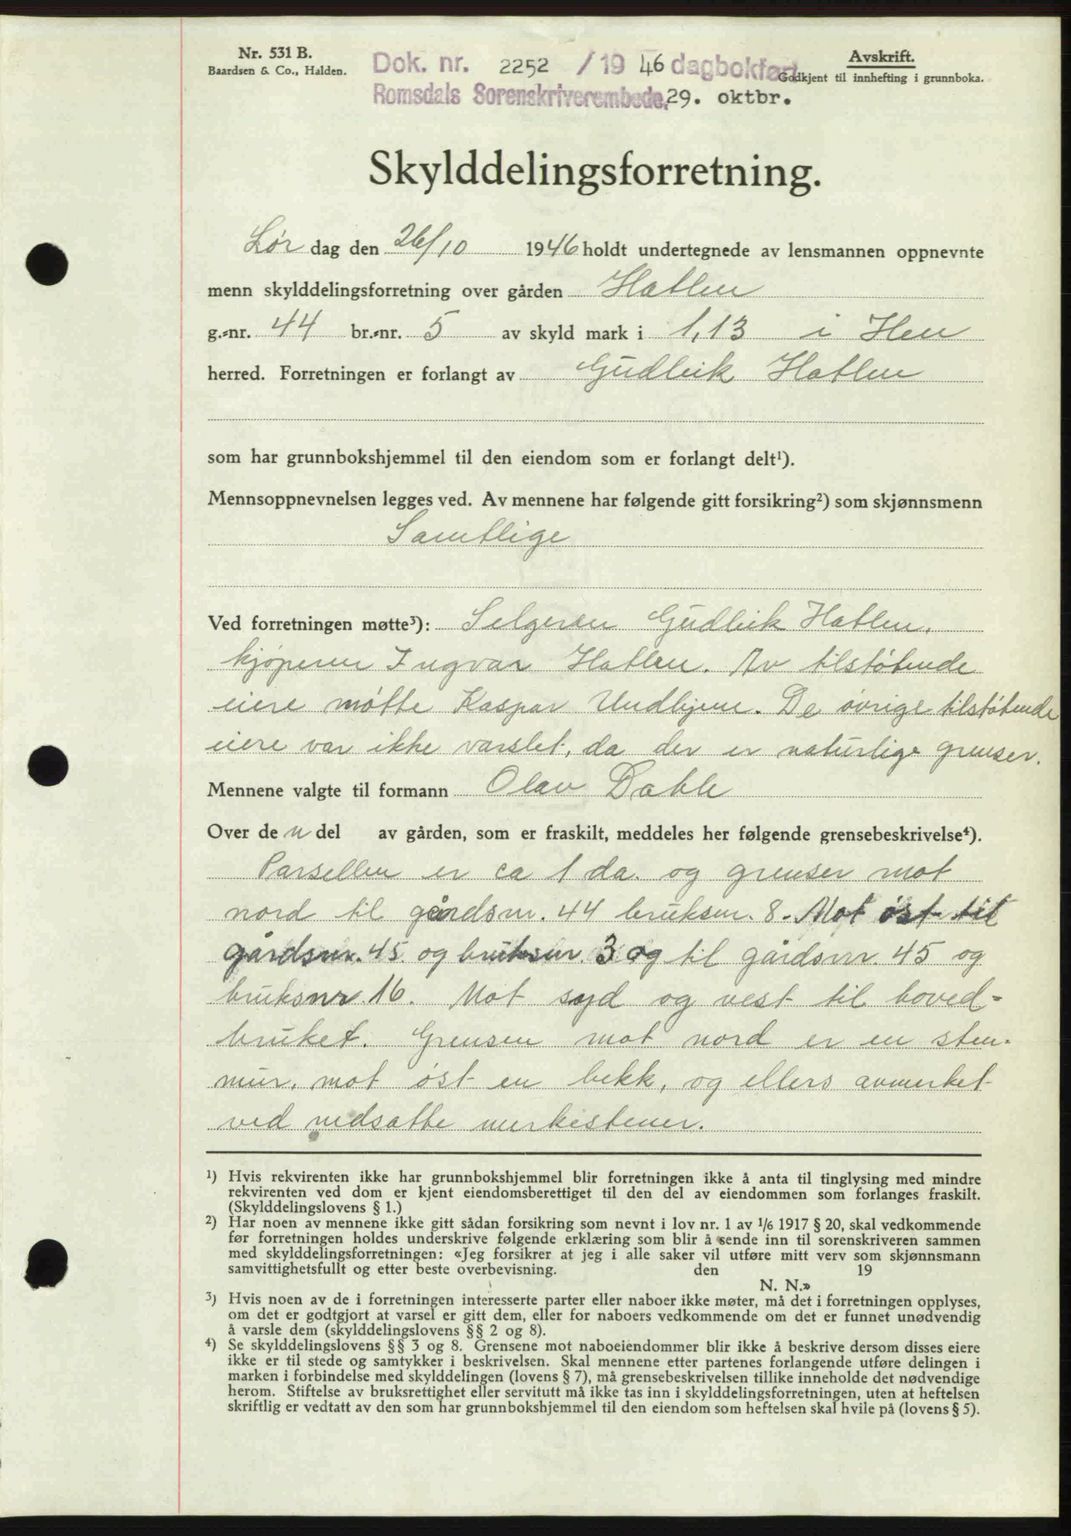 Nr. 531 B.
Baardsen & Co., Halden.
Dok. nr. 2252 / 19 46 dagbokført
Romsdals Sorenskriverembede, 29. oktbr.
Avskrift.
Godkjent til innhefting i grunnboka.
Skylddelingsforretning.
Lør dag den 26/10 1946 holdt undertegnede av lensmannen oppnevnte
menn skylddelingsforretning over gården Hatlen
g.-nr. 44 br.-nr. 5 av skyld mark i 1,13 i Hen
herred. Forretningen er forlangt av Gudleik Hatlen
som har grunnbokshjemmel til den eiendom som er forlangt delt¹).
Mennsoppnevnelsen legges ved. Av mennene har følgende gitt forsikring²) som skjønnsmenn
Samtlige
Ved forretningen møtte³): Selgeren Gudleik Hatlen,
kjøperen Ingvar Hatlen. Av tilstøtende
eiere møtte Kaspar Undhjem. De øvrige tilstøtende
eiere var ikke varslet, da der er naturlige grenser.
Mennene valgte til formann Olav Dahle
Over de n del av gården, som er fraskilt, meddeles her følgende grensebeskrivelse⁴).
Parsellen er ca 1 da. og grenser mot
nord til gårdsnr. 44 bruksnr. 8. Mot øst til
gårdsnr. 45 og bruksnr. 3 og til gårdsnr. 45 og
bruksnr 16. Mot syd og vest til hoved-
bruket. Grensen mot nord er en sten-
mur, mot øst en bekk, og ellers avmerket
ved nedsatte merkestener.
¹) Hvis rekvirenten ikke har grunnbokshjemmel blir forretningen ikke å anta til tinglysing med mindre
rekvirenten ved dom er kjent eiendomsberettiget til den del av eiendommen som forlanges fraskilt.
(Skylddelingslovens § 1.)
²) Har noen av mennene ikke gitt sådan forsikring som nevnt i lov nr. 1 av 1/6 1917 § 20, skal vedkommende
før forretningen holdes underskrive følgende erklæring som blir å sende inn til sorenskriveren sammen
med skylddelingsforretningen: «Jeg forsikrer at jeg i alle saker vil utføre mitt verv som skjønnsmann
samvittighetsfullt og etter beste overbevisning. den 19
N. N.»
³) Hvis noen av de i forretningen interesserte parter eller naboer ikke møter, må det i forretningen opplyses,
om det er godtgjort at varsel er gitt dem, eller for naboers vedkommende om det er funnet unødvendig
å varsle dem (skylddelingslovens §§ 2 og 8).
⁴) Se skylddelingslovens §§ 3 og 8. Grensene mot naboeiendommer blir ikke å beskrive dersom disses eiere
ikke er til stede og samtykker i beskrivelsen. Skal mennene etter partenes forlangende utføre delingen i
marken i forbindelse med skylddelingen (lovens § 7), må grensebeskrivelsen tillike inneholde det nødvendige
herom. Stiftelse av bruksrettighet eller servitutt må ikke tas inn i skylddelingsforretningen, uten at heftelsen
skriftlig er vedtatt av den som har grunnbokshjemmel til den eiendom som heftelsen skal hvile på (lovens § 5).